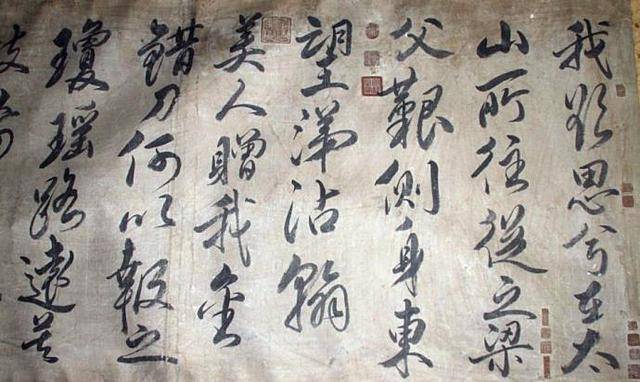 我欲思兮在太
山所往從之梁
父艱側身東
望涕沾翰
美人贈我金
錯刀何以報之
瓊瑤路遠莫